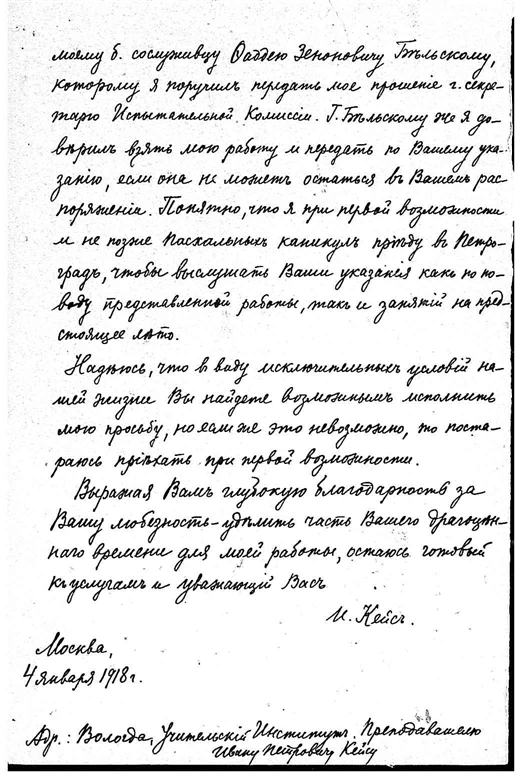 моему б. сослуживцу Фаддею Зеноновичу Бѣльскому,
которому я поручилъ передать мое прошеніе г. секре-
тарю Испытательной Комиссіи. Г. Бѣльскому же я до-
вѣрилъ взять мою работу и передать по Вашему ука-
занію, если она не можетъ остаться въ Вашемъ рас-
поряженіи. Понятно, что я при первой возможности
и не позже пасхальныхъ каникулъ пріѣду въ Петро-
градъ, чтобы выслушать Ваши указанія какъ по по-
воду представленной работы, такъ и занятій на пред-
стоящее лѣто.
Надѣюсь, что въ виду исключительныхъ условій на-
шей жизни Вы найдете возможнымъ исполнить
мою просьбу, но если же это невозможно, то поста-
раюсь пріѣхать при первой возможности.
Выражая Вамъ глубокую благодарность за
Вашу любезность - удѣлить часть Вашего драгоцѣн-
наго времени для моей работы, остаюсь готовый
къ услугамъ и уважающій Васъ
И. Кейсъ.
Москва,
4 января 1918 г.
Адр.: Вологда, Учительскій Институтъ. Преподавателю
Ивану Петровичу Кейсу